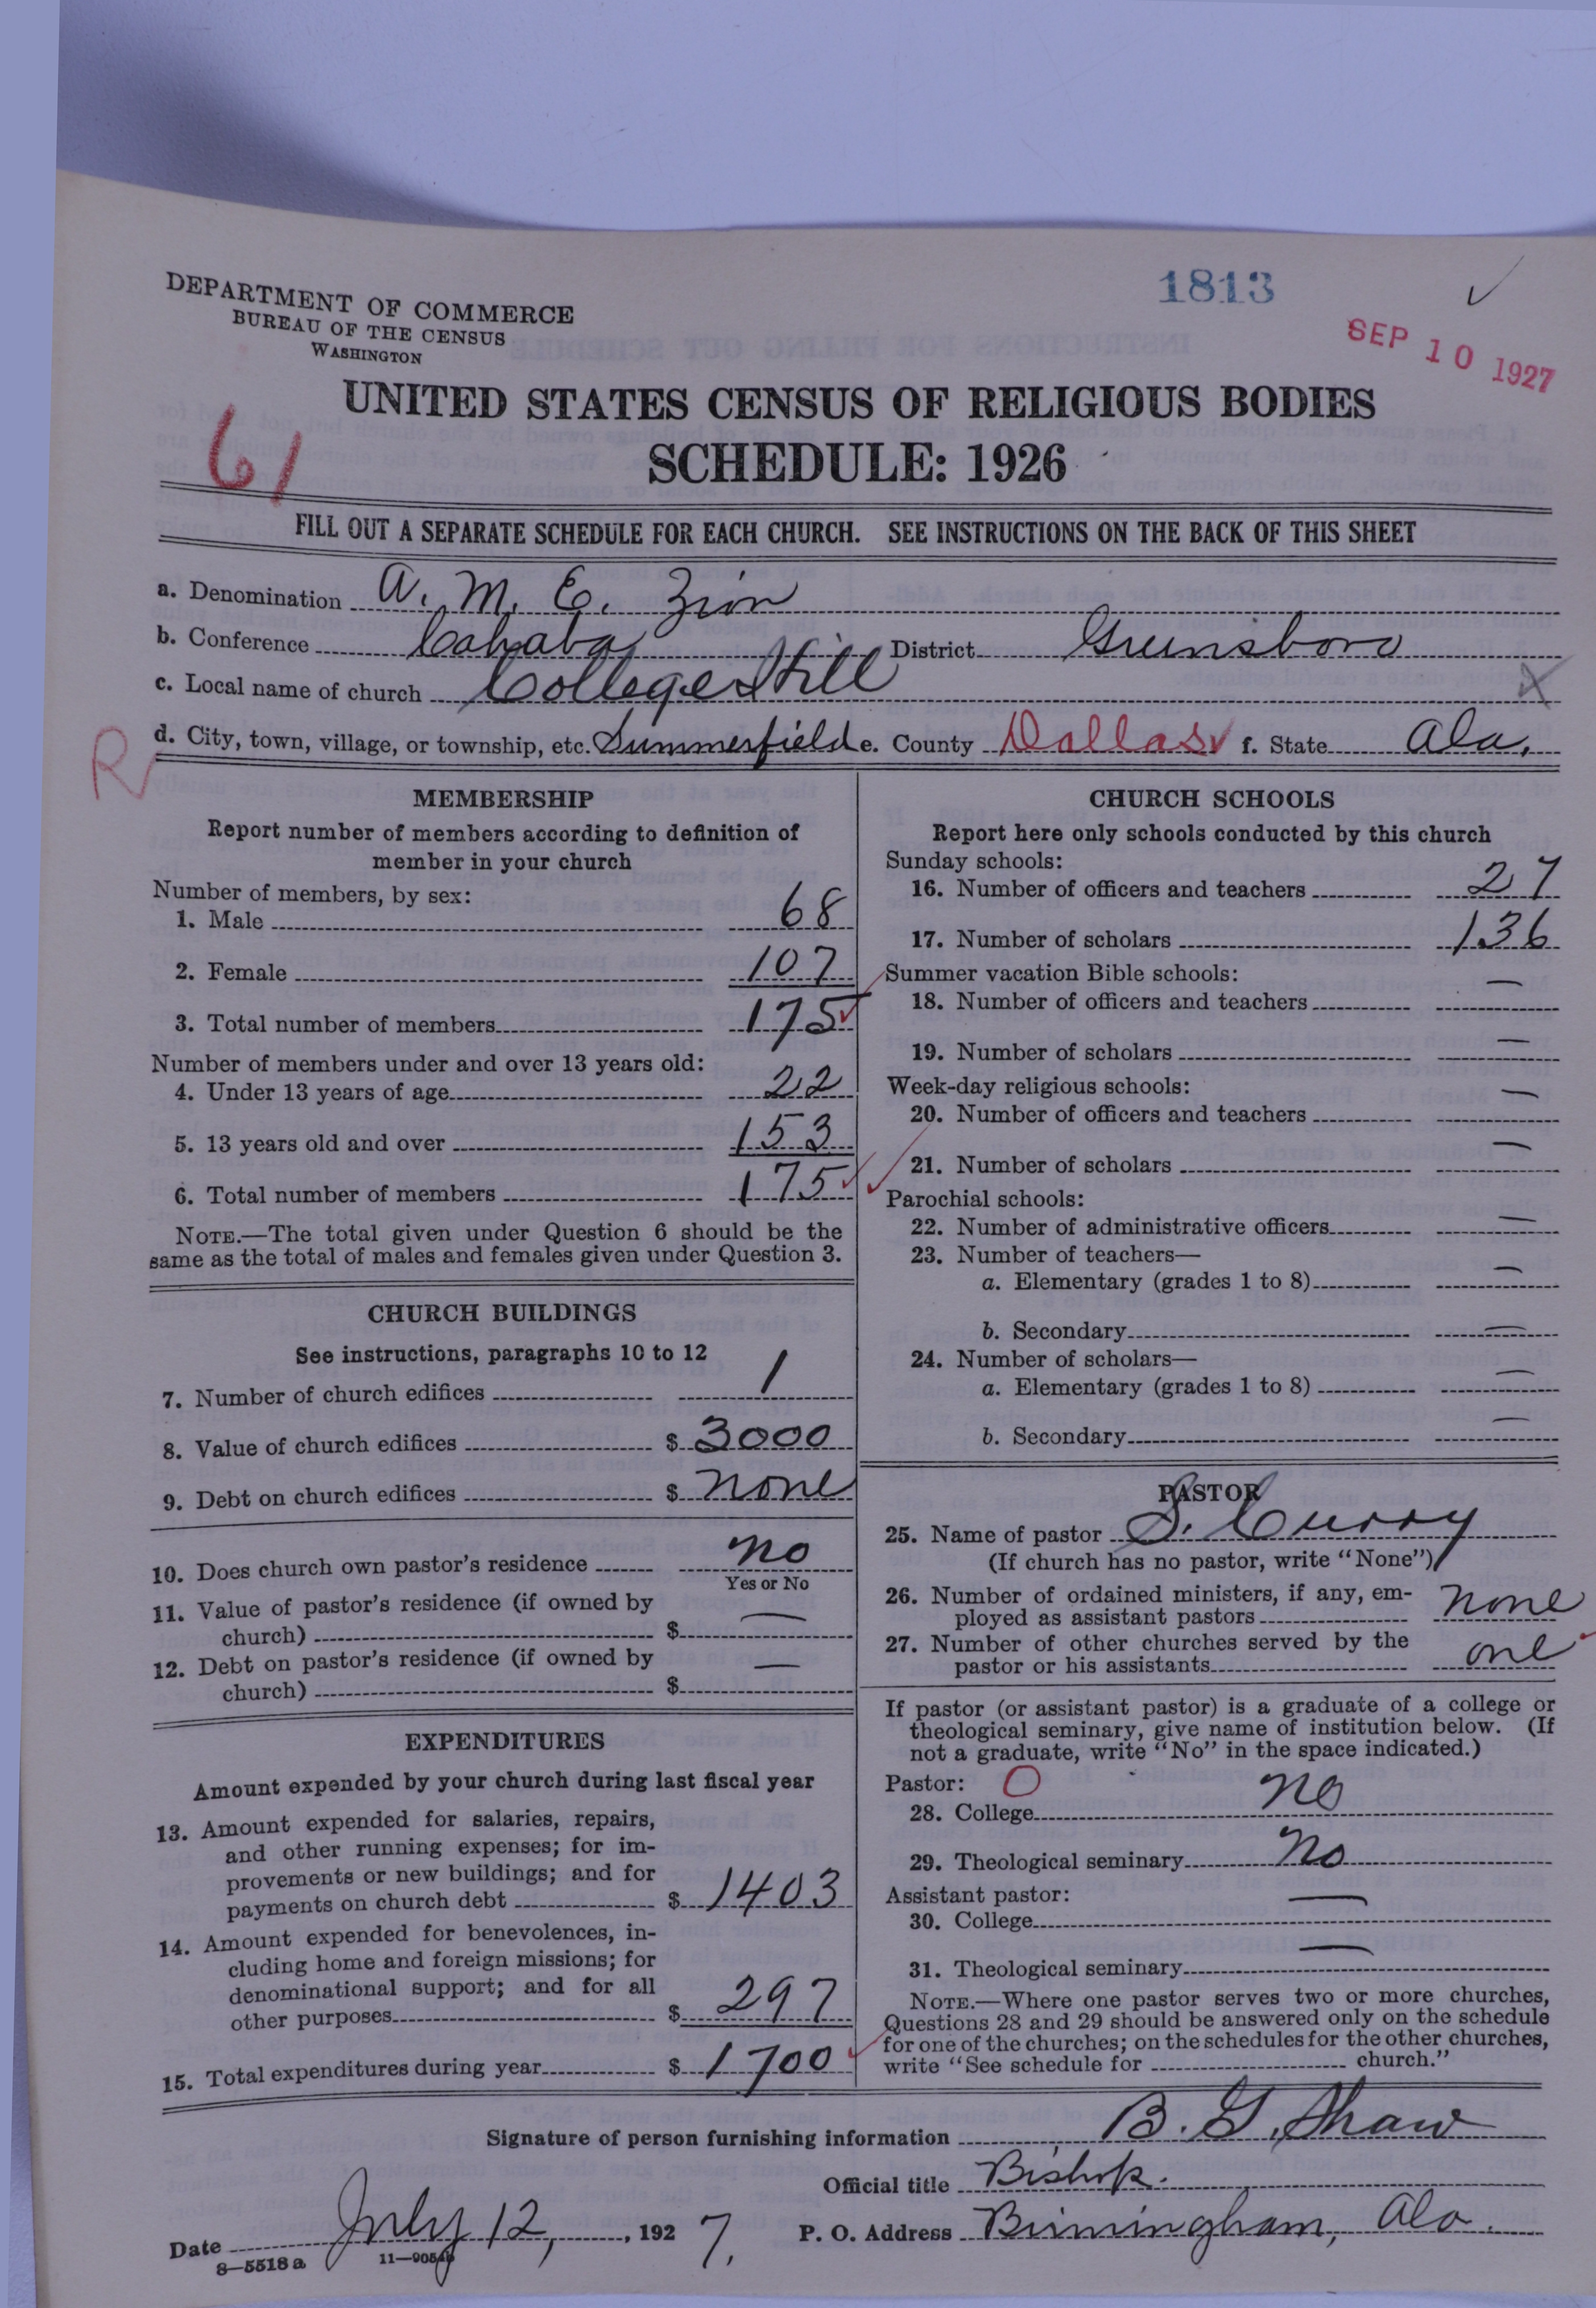 1813 ✓
DEPARTMENT OF COMMERCE
BUREAU OF THE CENSUS
WASHINGTON
SEP 10 1927
UNITED STATES CENSUS OF RELIGIOUS BODIES
SCHEDULE: 1926
61
FILL OUT A SEPARATE SCHEDULE FOR EACH CHURCH. SEE INSTRUCTIONS ON THE BACK OF THIS SHEET
a. Denomination A. M. E. Zion
b. Conference Cahaba District Greensboro
c. Local name of church College Hill
R
d. City, town, village, or township, etc. Summerfield e. County Dallas f. State Ala.
MEMBERSHIP
Report number of members according to definition of
member in your church
Number of members, by sex:
1. Male 68
2. Female 107
3. Total number of members 175
Number of members under and over 13 years old:
4. Under 13 years of age 22
5. 13 years old and over 153
6. Total number of members 175
NOTE.—The total given under Question 6 should be the
same as the total of males and females given under Question 3.
CHURCH BUILDINGS
See instructions, paragraphs 10 to 12
7. Number of church edifices 1
8. Value of church edifices $ 3000
9. Debt on church edifices $ none
10. Does church own pastor's residence no
Yes or No
11. Value of pastor's residence (if owned by
church) $ —
12. Debt on pastor's residence (if owned by
church) $ —
EXPENDITURES
Amount expended by your church during last fiscal year
13. Amount expended for salaries, repairs,
and other running expenses; for im-
provements or new buildings; and for
payments on church debt $ 1403
14. Amount expended for benevolences, in-
cluding home and foreign missions; for
denominational support; and for all
other purposes $ 297
15. Total expenditures during year $ 1700
CHURCH SCHOOLS
Report here only schools conducted by this church
Sunday schools:
16. Number of officers and teachers 27
17. Number of scholars 136
Summer vacation Bible schools:
18. Number of officers and teachers —
19. Number of scholars —
Week-day religious schools:
20. Number of officers and teachers —
21. Number of scholars —
Parochial schools:
22. Number of administrative officers —
23. Number of teachers—
a. Elementary (grades 1 to 8) —
b. Secondary —
24. Number of scholars—
a. Elementary (grades 1 to 8) —
b. Secondary —
PASTOR
25. Name of pastor S. Curry
(If church has no pastor, write "None")
26. Number of ordained ministers, if any, em-
ployed as assistant pastors none
27. Number of other churches served by the
pastor or his assistants one
If pastor (or assistant pastor) is a graduate of a college or
theological seminary, give name of institution below. (If
not a graduate, write "No" in the space indicated.)
Pastor: O
28. College no
29. Theological seminary No
Assistant pastor:
30. College —
31. Theological seminary —
NOTE.—Where one pastor serves two or more churches,
Questions 28 and 29 should be answered only on the schedule
for one of the churches; on the schedules for the other churches,
write "See schedule for church."
Signature of person furnishing information B. G. Shaw
Official title Bishop.
Date July 12, 1927. P. O. Address Birmingham, Ala.
8—5518 a